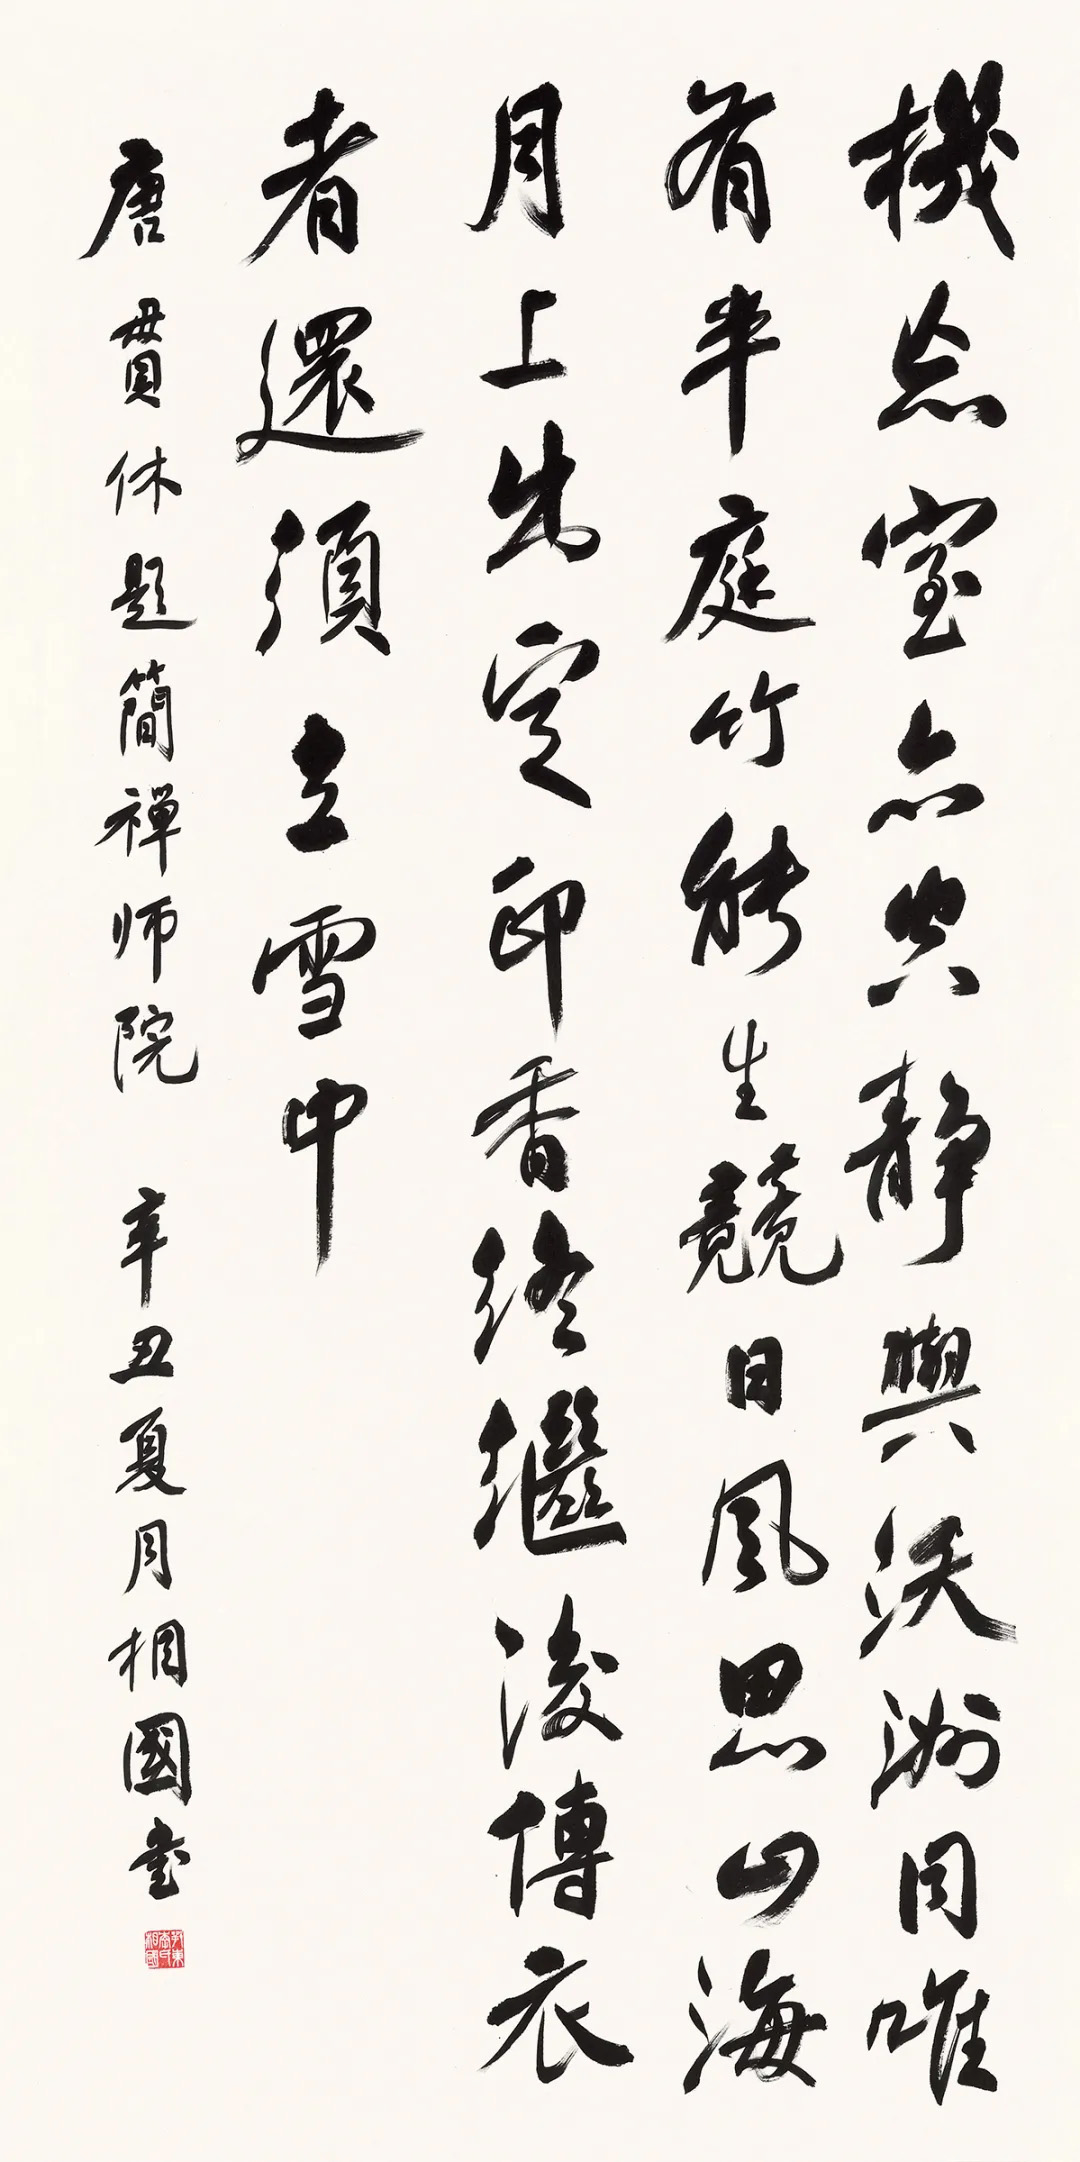 機忘室亦空静與沃洲同唯
有半庭竹能生竟日風思山海
月上出定印香終繼後傳衣
者還須立雪中
唐貫休題簡禪师院 辛丑夏月相國書